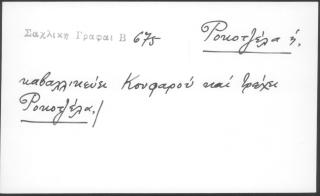 Σαχλικη Γραφαι Β 675
Ροκοτζέλα ἡ.
καβαλλικεύει Κουφαροῦ καί τρέχει
Ροκοτζέλα /